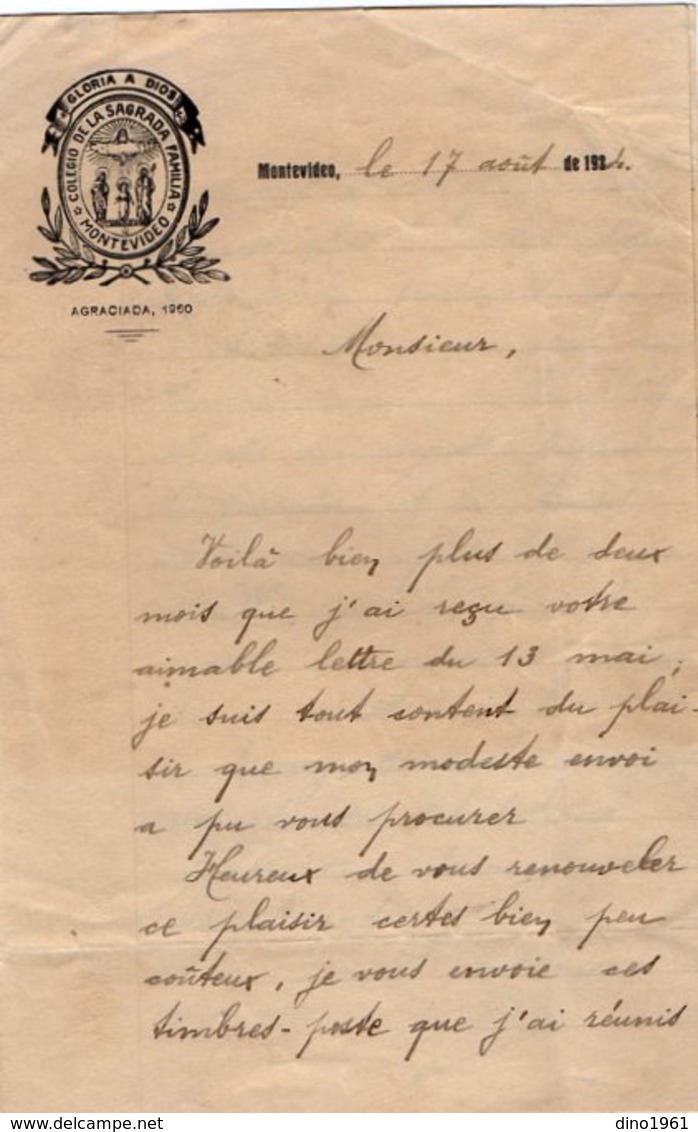 GLORIA A DIOS
COLEGIO DE LA SAGRADA FAMILIA
MONTEVIDEO
AGRACIADA, 1960
Montevideo, le 17 août de 1924.
Monsieur,
Voilà bien plus de deux
mois que j'ai reçu votre
aimable lettre du 13 mai ;
je suis tout content du plai-
sir que mon modeste envoi
a pu vous procurer
Heureux de vous renouveler
ce plaisir certes bien peu
coûteux, je vous envoie ces
timbres-poste que j'ai réunis
delcampe.net
dino1961